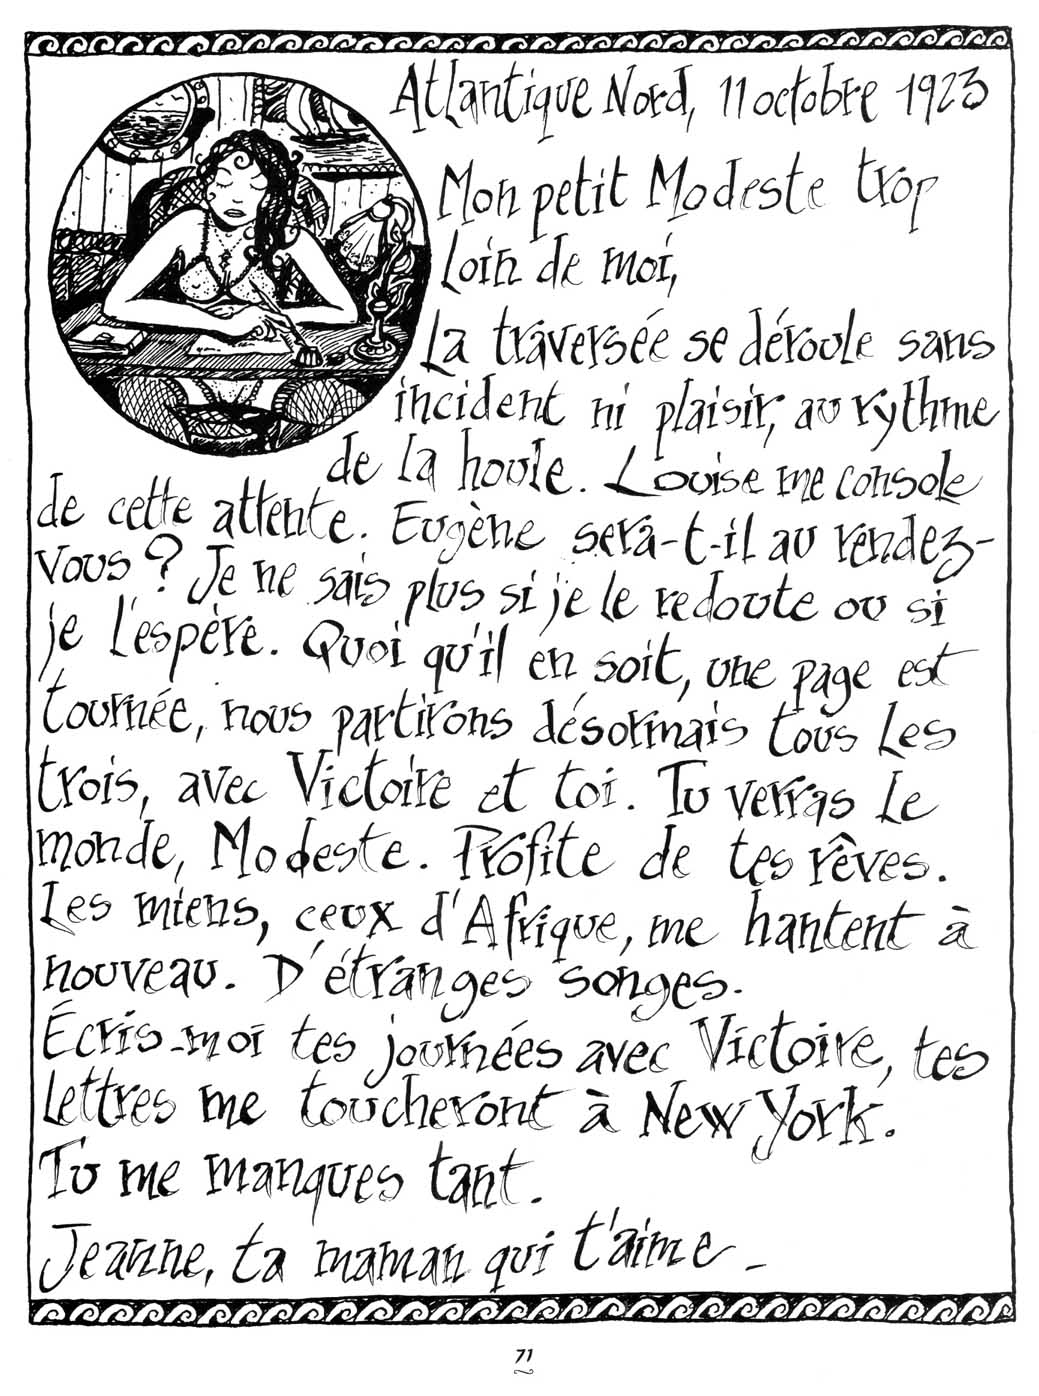 Atlantique Nord, 11 octobre 1923
Mon petit Modeste trop
loin de moi,
La traversée se déroule sans
incident ni plaisir, au rythme
de la houle. Louise me console
de cette attente. Eugène sera-t-il au rendez-
vous ? Je ne sais plus si je le redoute ou si
je l'espère. Quoi qu'il en soit, une page est
tournée, nous partirons désormais tous les
trois, avec Victoire et toi. Tu verras le
monde, Modeste. Profite de tes rêves.
Les miens, ceux d'Afrique, me hantent à
nouveau. D'étranges songes.
Écris-moi tes journées avec Victoire, tes
lettres me toucheront à New York.
Tu me manques tant.
Jeanne, ta maman qui t'aime_
71